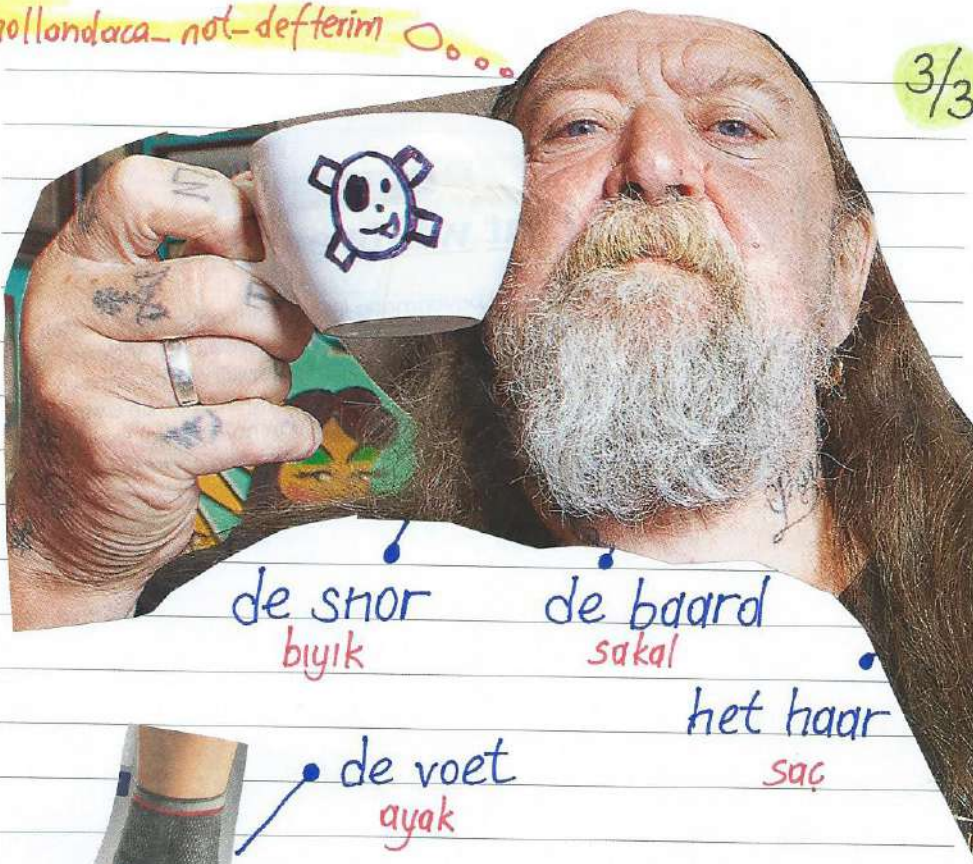 hollandaca_not_defterim
3/3
de snor
bıyık
de baard
sakal
het haar
saç
de voet
ayak